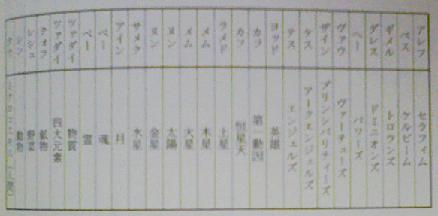 アレフ セラフィム
ベス ケルビーム
ギメル トロウンズ
ダレス ドミニオンズ
ヘー パワーズ
ヴァウ ヴァーチューズ
ザイン プリンシパリティーズ
ケス アークエンジェルズ
テス エンジェルズ
ヨッド 英雄
カフ 第一動因
カフ 恒星天
ラメド 土星
メム 木星
メム 火星
ヌン 太陽
ヌン 金星
サメク 水星
アイン 月
ペー 魂
ペー 霊
ツァダイ 物質
ツァダイ 四大元素
クオフ 鉱物
レシュ 野菜
シン 動物